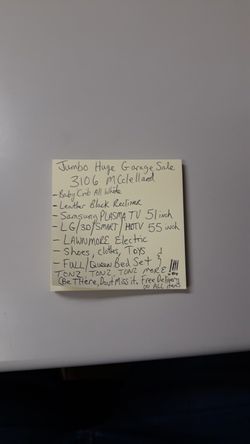 Jumbo Huge Garage Sale
3106 McClelland
- Baby Crib All White
- Leather Black Recliner
- Samsung PLASMA TV 51 inch
- LG/3D/SMART/HDTV 55 inch
- LAWNMORE Electric
- Shoes, clothes, TOYS
- FULL/Queen Bed Set
TONZ, TONZ, TONZ MORE!!!!
(Be There, Don't Miss it. Free Delivery
on ALL items